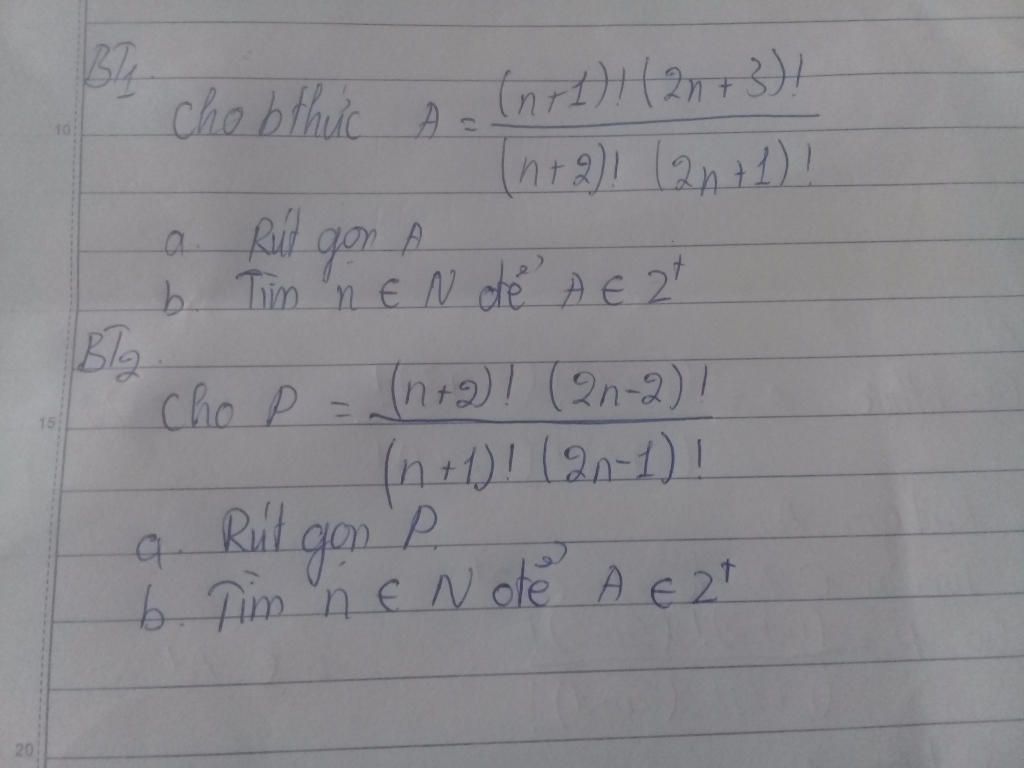 BT1
Cho bthức A = \frac{(n+1)! (2n+3)!}{(n+2)! (2n+1)!}
a. Rút gọn A
b. Tìm n ∈ N để A ∈ Z⁺
BT2
Cho P = \frac{(n+2)! (2n-2)!}{(n+1)! (2n-1)!}
a. Rút gọn P.
b. Tìm n ∈ N để A ∈ Z⁺
10
15
20